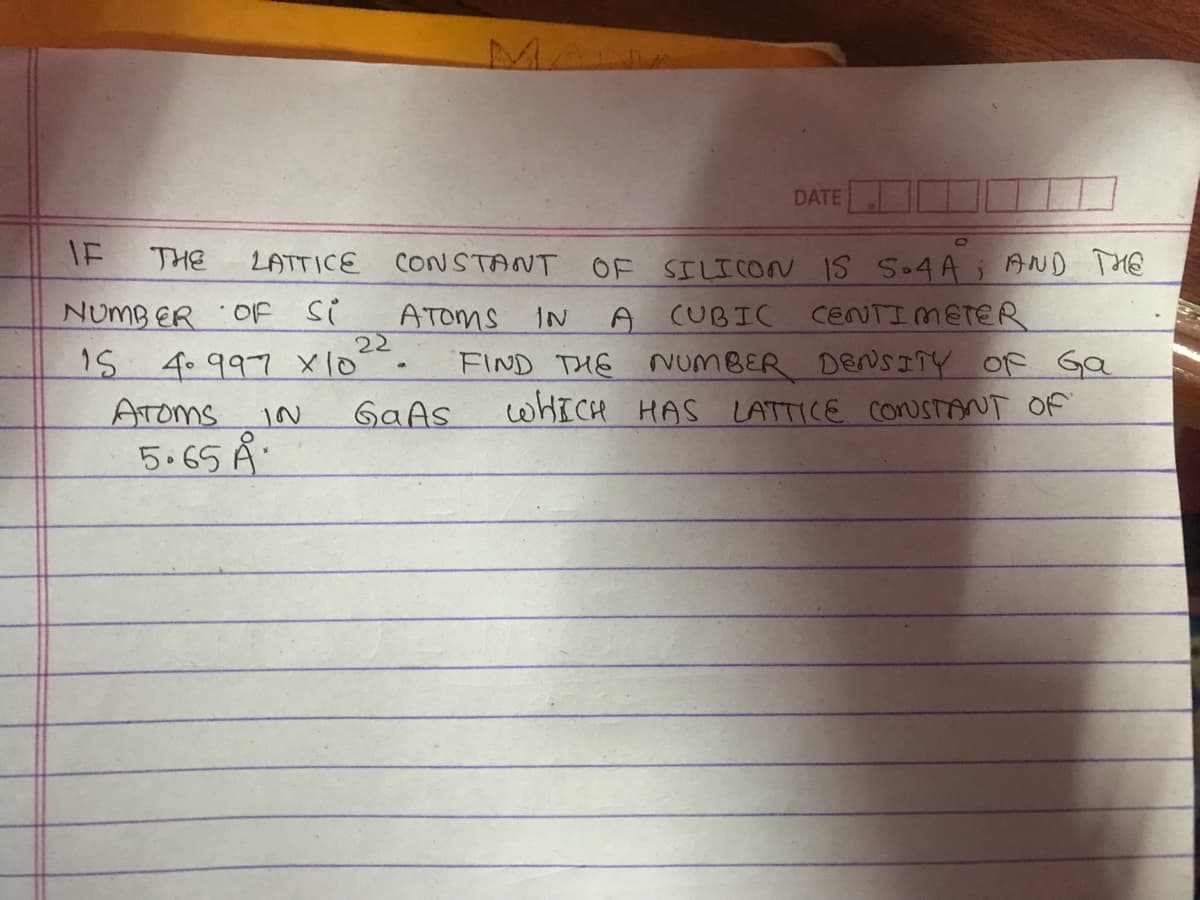 DATE
IF THE LATTICE CONSTANT OF SILICON IS 5.4Å; AND THE
NUMBER OF Si ATOMS IN A CUBIC CENTIMETER
IS 4.997 x10²². FIND THE NUMBER DENSITY OF Ga
ATOMS IN GaAs WHICH HAS LATTICE CONSTANT OF
5.65 Å.